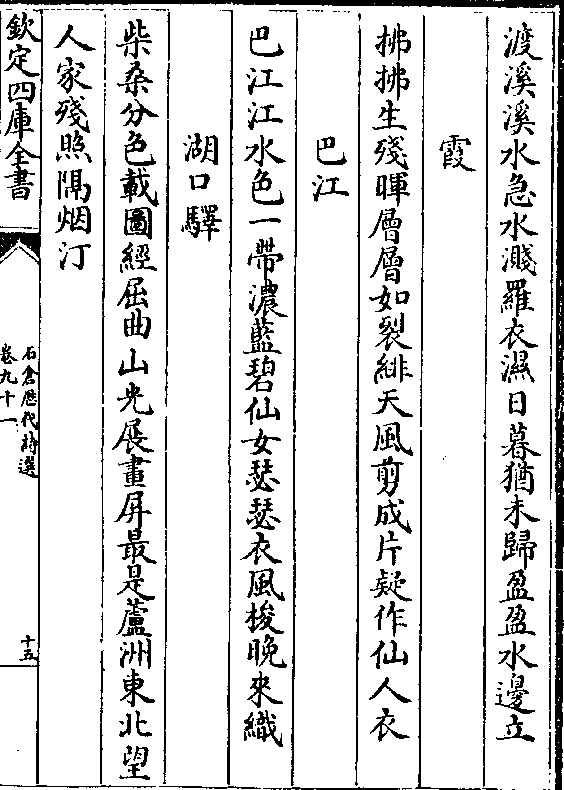 渡溪溪水急水濺羅衣濕日暮猶未歸盈盈水邊立
霞
拂拂生殘暉層層如裂緋天風剪成片疑作仙人衣
巴江
巴江江水色一帶濃藍碧仙女瑟瑟衣風梭晚來織
湖口驛
柴桑分色載圖經屈曲山光展畫屏最是蘆洲東北望
人家殘照隔烟汀
欽定四庫全書
石倉歷代詩選
卷九十一
十五